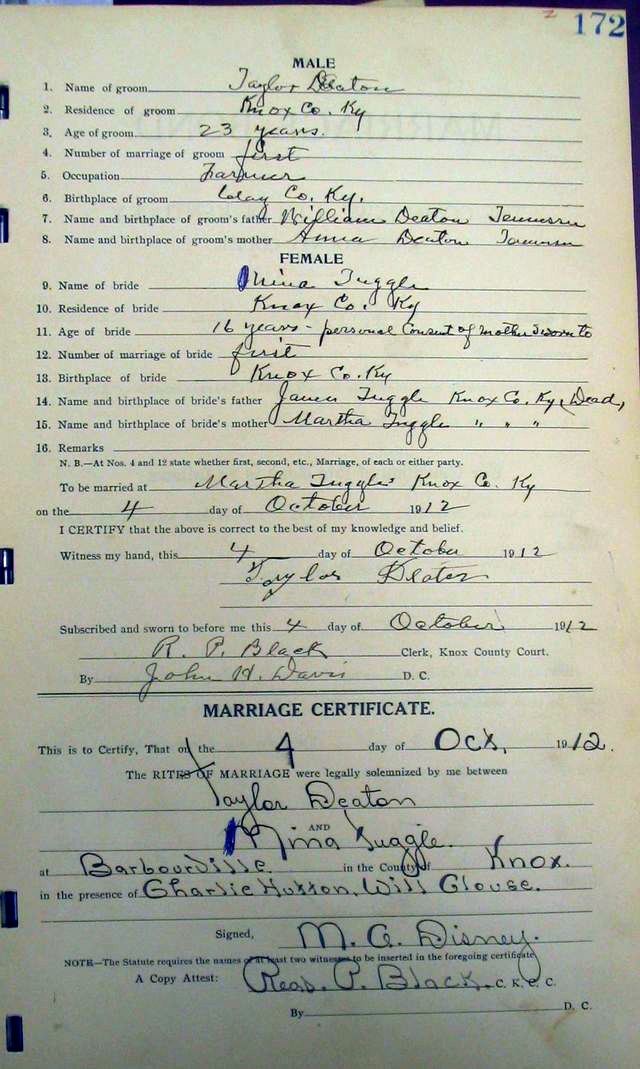 172
MALE
1. Name of groom Taylor Deaton
2. Residence of groom Knox Co. Ky
3. Age of groom 23 years.
4. Number of marriage of groom first
5. Occupation Farmer
6. Birthplace of groom Clay Co. Ky.
7. Name and birthplace of groom's father William Deaton
8. Name and birthplace of groom's mother Anna Deaton
FEMALE
9. Name of bride Mina Tuggle
10. Residence of bride Knox Co. Ky
11. Age of bride 16 years - personal Consent of mother sworn to
12. Number of marriage of bride first
13. Birthplace of bride Knox Co. Ky
14. Name and birthplace of bride's father James Tuggle Knox Co. Ky, Dead,
15. Name and birthplace of bride's mother Martha Tuggle " " "
16. Remarks
N. B.—At Nos. 4 and 12 state whether first, second, etc., Marriage, of each or either party.
To be married at Martha Tuggles Knox Co. Ky
on the 4 day of October 1912
I CERTIFY that the above is correct to the best of my knowledge and belief.
Witness my hand, this 4 day of October 1912
Taylor Deaton
Subscribed and sworn to before me this 4 day of October 1912
R. P. Black Clerk, Knox County Court.
By John H. Davis D. C.
MARRIAGE CERTIFICATE.
This is to Certify, That on the 4 day of Oct, 1912.
The RITES OF MARRIAGE were legally solemnized by me between
Taylor Deaton
AND
Mina Tuggle.
at Barbourville in the County of Knox.
in the presence of Charlie Hutton, Will Clouse.
Signed, M. C. Disney.
NOTE—The Statute requires the names of at least two witnesses to be inserted in the foregoing certificate
A Copy Attest: Read P. Black. C. K. C. C.
By D. C.